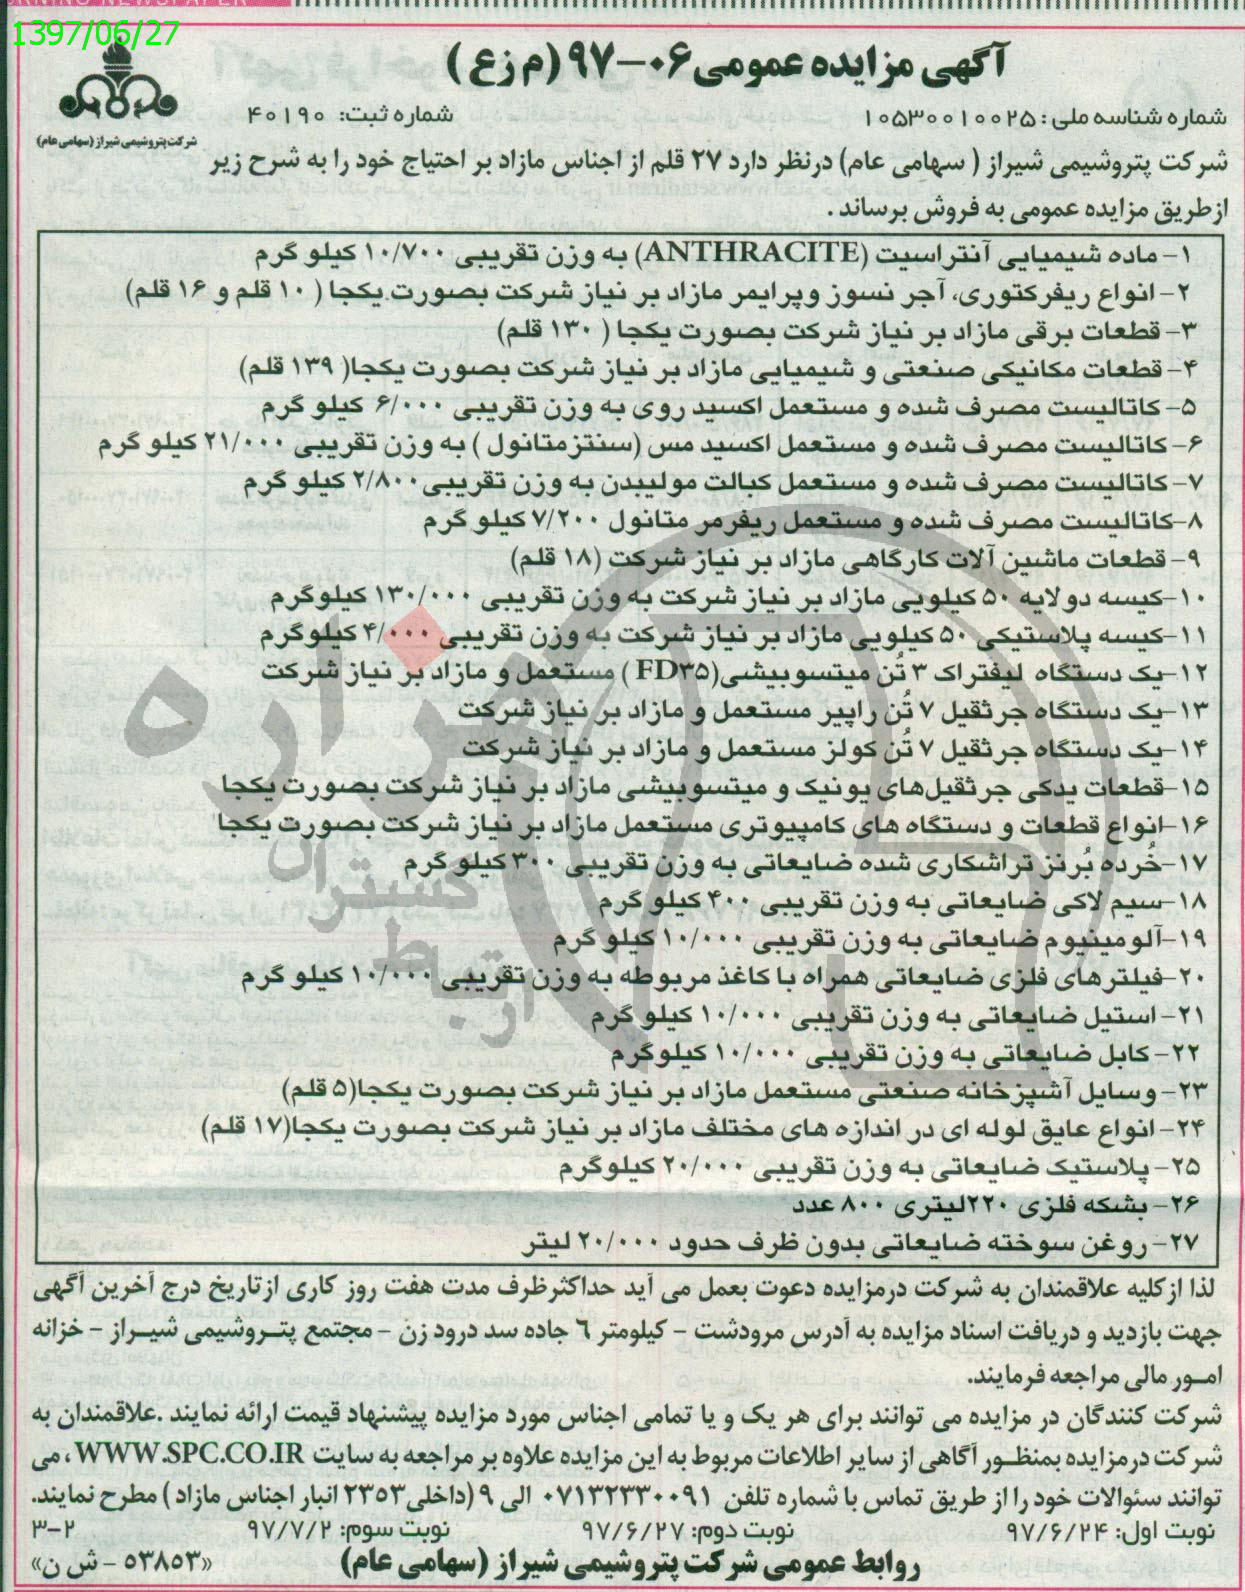 1397/06/27
آگهی مزایده عمومی ۰۶-۹۷ (م زع)
شرکت پتروشیمی شیراز (سهامی عام)
شماره شناسه ملی: ۱۰۵۳۰۰۱۰۰۲۵ شماره ثبت: ۴۰۱۹۰
شرکت پتروشیمی شیراز ( سهامی عام) درنظر دارد ۲۷ قلم از اجناس مازاد بر احتیاج خود را به شرح زیر
ازطریق مزایده عمومی به فروش برساند .
۱- ماده شیمیایی آنتراسیت (ANTHRACITE) به وزن تقریبی ۱۰/۷۰۰ کیلو گرم
۲- انواع ریفرکتوری، آجر نسوز وپرایمر مازاد بر نیاز شرکت بصورت یکجا ( ۱۰ قلم و ۱۶ قلم)
۳- قطعات برقی مازاد بر نیاز شرکت بصورت یکجا ( ۱۳۰ قلم)
۴- قطعات مکانیکی صنعتی و شیمیایی مازاد بر نیاز شرکت بصورت یکجا( ۱۳۹ قلم)
۵- کاتالیست مصرف شده و مستعمل اکسید روی به وزن تقریبی ۶/۰۰۰ کیلو گرم
۶- کاتالیست مصرف شده و مستعمل اکسید مس (سنتزمتانول ) به وزن تقریبی ۲۱/۰۰۰ کیلو گرم
۷- کاتالیست مصرف شده و مستعمل کبالت مولیبدن به وزن تقریبی۲/۸۰۰ کیلو گرم
۸-کاتالیست مصرف شده و مستعمل ریفرمر متانول ۷/۲۰۰ کیلو گرم
۹- قطعات ماشین آلات کارگاهی مازاد بر نیاز شرکت (۱۸ قلم)
۱۰-کیسه دولایه ۵۰ کیلویی مازاد بر نیاز شرکت به وزن تقریبی ۱۳۰/۰۰۰ کیلوگرم
۱۱-کیسه پلاستیکی ۵۰ کیلویی مازاد بر نیاز شرکت به وزن تقریبی ۴/۰۰۰ کیلوگرم
۱۲-یک دستگاه لیفتراک ۳ تُن میتسوبیشی(FD۳۵ ) مستعمل و مازاد بر نیاز شرکت
۱۳-یک دستگاه جرثقیل ۷ تُن راپیر مستعمل و مازاد بر نیاز شرکت
۱۴-یک دستگاه جرثقیل ۷ تُن کولز مستعمل و مازاد بر نیاز شرکت
۱۵-قطعات یدکی جرثقیل‌های یونیک و میتسوبیشی مازاد بر نیاز شرکت بصورت یکجا
۱۶-انواع قطعات و دستگاه های کامپیوتری مستعمل مازاد بر نیاز شرکت بصورت یکجا
۱۷-خُرده بُرنز تراشکاری شده ضایعاتی به وزن تقریبی ۳۰۰ کیلو گرم
۱۸-سیم لاکی ضایعاتی به وزن تقریبی ۴۰۰ کیلو گرم
۱۹-آلومینیوم ضایعاتی به وزن تقریبی ۱۰/۰۰۰ کیلو گرم
۲۰-فیلترهای فلزی ضایعاتی همراه با کاغذ مربوطه به وزن تقریبی ۱۰/۰۰۰ کیلو گرم
۲۱- استیل ضایعاتی به وزن تقریبی ۱۰/۰۰۰ کیلو گرم
۲۲- کابل ضایعاتی به وزن تقریبی ۱۰/۰۰۰ کیلوگرم
۲۳- وسایل آشپزخانه صنعتی مستعمل مازاد بر نیاز شرکت بصورت یکجا(۵ قلم)
۲۴- انواع عایق لوله ای در اندازه های مختلف مازاد بر نیاز شرکت بصورت یکجا(۱۷ قلم)
۲۵- پلاستیک ضایعاتی به وزن تقریبی ۲۰/۰۰۰ کیلوگرم
۲۶- بشکه فلزی ۲۲۰لیتری ۸۰۰ عدد
۲۷- روغن سوخته ضایعاتی بدون ظرف حدود ۲۰/۰۰۰ لیتر
هزاره
گستران
ارتباط
لذا ازکلیه علاقمندان به شرکت درمزایده دعوت بعمل می آید حداکثرظرف مدت هفت روز کاری ازتاریخ درج آخرین آگهی
جهت بازدید و دریافت اسناد مزایده به آدرس مرودشت - کیلومتر ٦ جاده سد درود زن - مجتمع پتروشیمی شیراز - خزانه
امور مالی مراجعه فرمایند.
شرکت کنندگان در مزایده می توانند برای هر یک و یا تمامی اجناس مورد مزایده پیشنهاد قیمت ارائه نمایند .علاقمندان به
شرکت درمزایده بمنظور آگاهی از سایر اطلاعات مربوط به این مزایده علاوه بر مراجعه به سایت WWW.SPC.CO.IR ، می
توانند سئوالات خود را از طریق تماس با شماره تلفن ۰۷۱۳۲۳۳۰۰۹۱ الی ۹ (داخلی۲۳۵۳ انبار اجناس مازاد ) مطرح نمایند.
نوبت اول: ۹۷/۶/۲۴ نوبت دوم: ۹۷/۶/۲۷ نوبت سوم: ۹۷/۷/۲ ۳-۲
روابط عمومی شرکت پتروشیمی شیراز (سهامی عام) «۵۳۸۵۳ - ش ن»